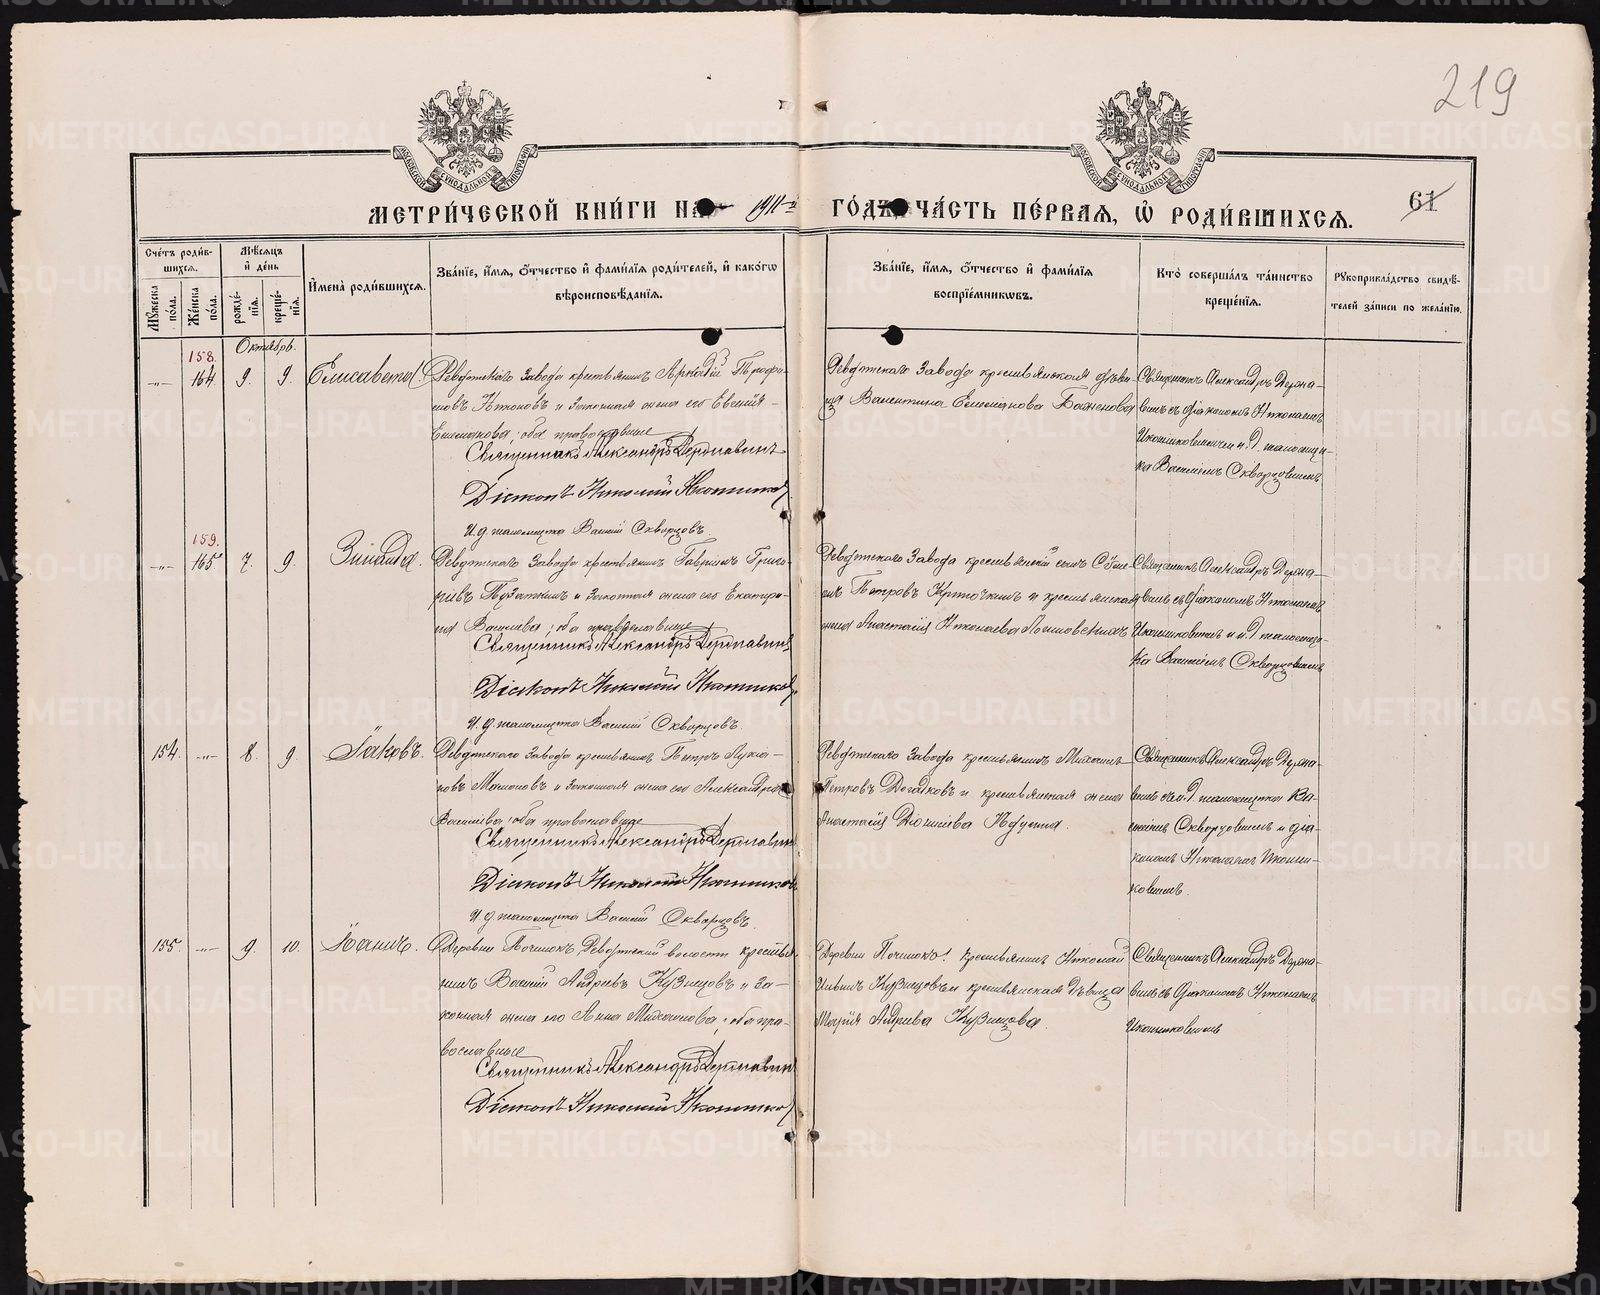 219
МОСКОВСКОЙ СУНОДАЛЬНОЙ ТИПОГРАФІИ
МОСКОВСКОЙ СУНОДАЛЬНОЙ ТИПОГРАФІИ
МЕТРИ́ЧЕСКОЙ КНИ́ГИ НА 1911-й ГО́ДЪ ЧА́СТЬ ПЕ́РВАЯ, Ѽ РОДИ́ВШИХСЯ.
61
Сче́тъ роди́в-
шихся.
Мѣ́сяцъ
и҆ де́нь
И҆мена̀ роди́вшихся.
Зва́нїе, и҆́мя, ѻ҆́тчество и҆ фами́лїя роди́телей, и҆ како́гѡ
вѣроисповѣ́данїя.
Зва́нїе, и҆́мя, ѻ҆́тчество и҆ фами́лїя
воспрїе́мникѡвъ.
Кто̀ соверша́лъ та́инство
креще́нїя.
Рꙋкоприкла́дство свидѣ́-
телей за́писи по жела́нїю.
Мꙋ́жеска
по́ла.
Же́нска
по́ла.
рожде́-
нїя.
креще́-
нїя.
Октябрь.
158.
-„- 164 9. 9. Елисавета
Ревдтскаго Завода крестьянинъ Аркадій Трофи-
мовъ и законная жена его Евгенія
Емельянова, оба православные
Священникъ Александръ Державинъ
Діаконъ Николай Иконниковъ
И. д. псаломщика Василій Скворцовъ
Ревдтскаго Завода крестьянская дѣви-
ца Валентина Емельянова Баженова
Священникъ Александръ Держа-
винъ съ діакономъ Николаемъ
Иконниковымъ и и. д. псаломщи-
ка Василіемъ Скворцовымъ
159.
-„- 165 7. 9. Зинаида.
Ревдтскаго Завода крестьянинъ Гавріилъ Григо-
рьевъ и законная жена его Екатери-
на Васильева, оба православные
Священникъ Александръ Державинъ
Діаконъ Николай Иконниковъ
И. д. псаломщика Василій Скворцовъ
Ревдтскаго Завода крестьянскій сынъ
Петровъ и крестьянская
жена Анастасія Николаева
Священникъ Александръ Держа-
винъ съ діакономъ Николаемъ
Иконниковымъ и и. д. псаломщи-
ка Василіемъ Скворцовымъ
154. -„- 8. 9. Іаковъ.
Ревдтскаго Завода крестьянинъ Петръ Лукія-
новъ Мамоновъ и законная жена его Александра
Васильева, оба православные
Священникъ Александръ Державинъ
Діаконъ Николай Иконниковъ
И. д. псаломщика Василій Скворцовъ
Ревдтскаго Завода крестьянинъ Михаилъ
Петровъ и крестьянская жена
Анастасія
Священникъ Александръ Держа-
винъ съ и. д. псаломщика Ва-
силіемъ Скворцовымъ и діа-
кономъ Николаемъ Иконни-
ковымъ.
155. -„- 9. 10. Іоаннъ.
Деревни Починокъ, Ревдтской волости крестья-
нинъ Василій Андреевъ Кузнецовъ и за-
конная жена его Анна Михаилова, оба пра-
вославные
Священникъ Александръ Державинъ
Діаконъ Николай Иконниковъ
Деревни Починокъ крестьянинъ Николай
Ильинъ Кузнецовъ и крестьянская дѣвица
Марія Андреева Кузнецова.
Священникъ Александръ Держа-
винъ съ діакономъ Николаемъ
Иконниковымъ
METRIKI.GASO-URAL.RU